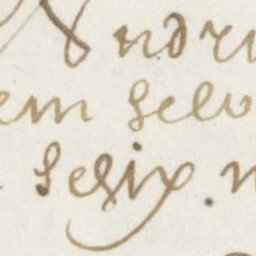 Andri
em selv
selix. n